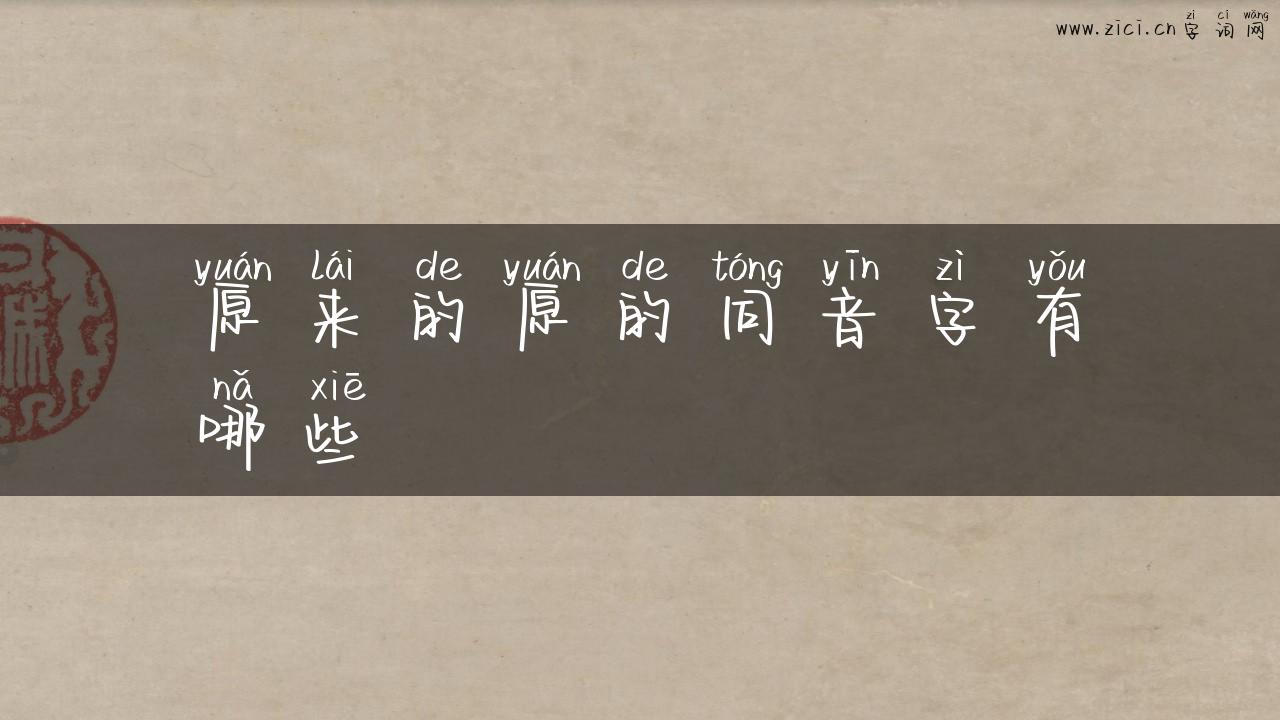 zì cí wǎng
www.zici.cn 字词网
yuán lái de yuán de tóng yīn zì yǒu
原来的原的同音字有
nǎ xiē
哪些